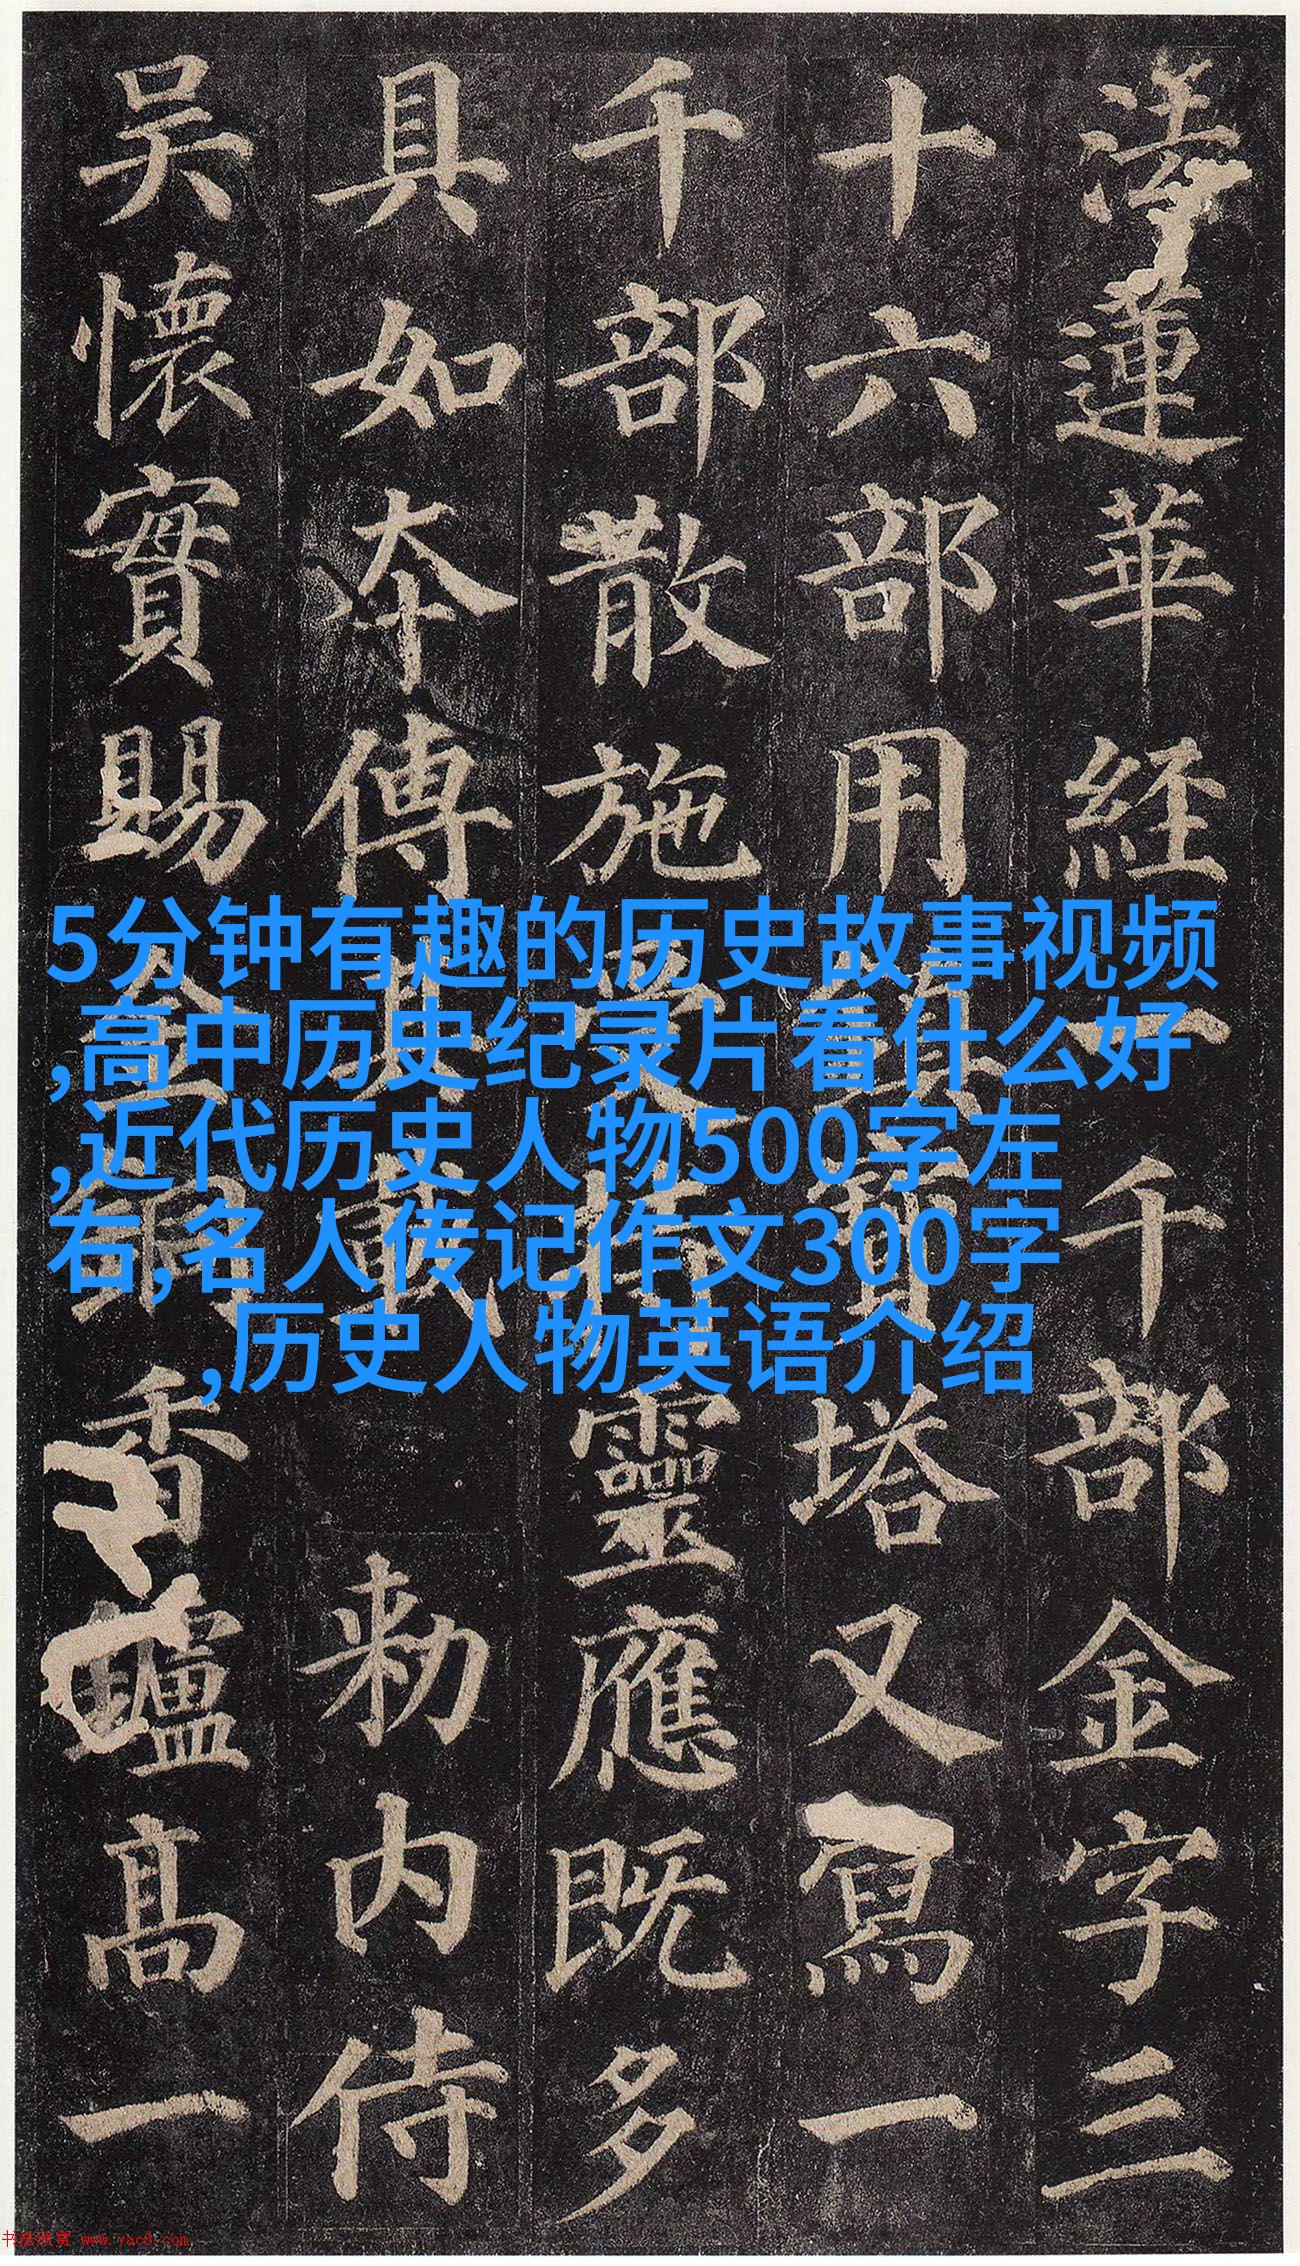 法蓮華經一千部金字三
十六部用鎮寶塔又寫一
千部散施受持靈應既多
具如夲傳其載勅内侍
吳懷實賜金銅香爐高一
5分钟有趣的历史故事视频
,高中历史纪录片看什么好
,近代历史人物500字左
右,名人传记作文300字
,历史人物英语介绍
书法欣赏 www.yac8.com